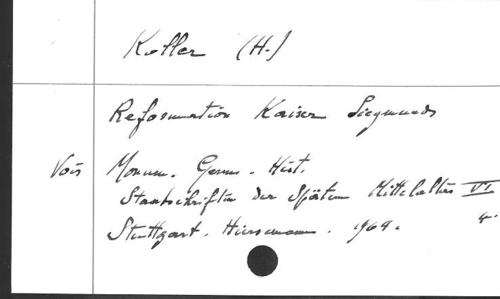 Koller (H.)
Reformation Kaiser Siegmunds
Vois Monum. Germ. Hist.
Staatsschriften der Späten Mittelalters VI
Stuttgart. Hiersemann. 1964. 4°